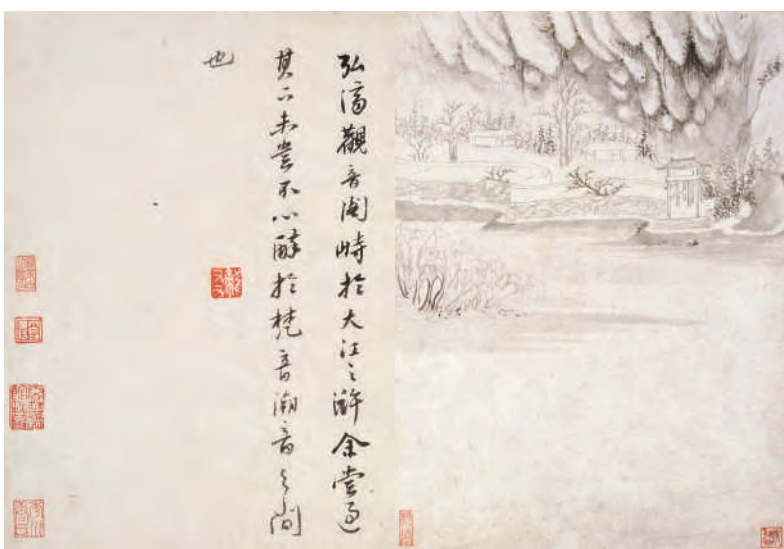 弘濟觀音閣峙於大江之滸余嘗過
其下未嘗不心醉於梵音潮音之間
也